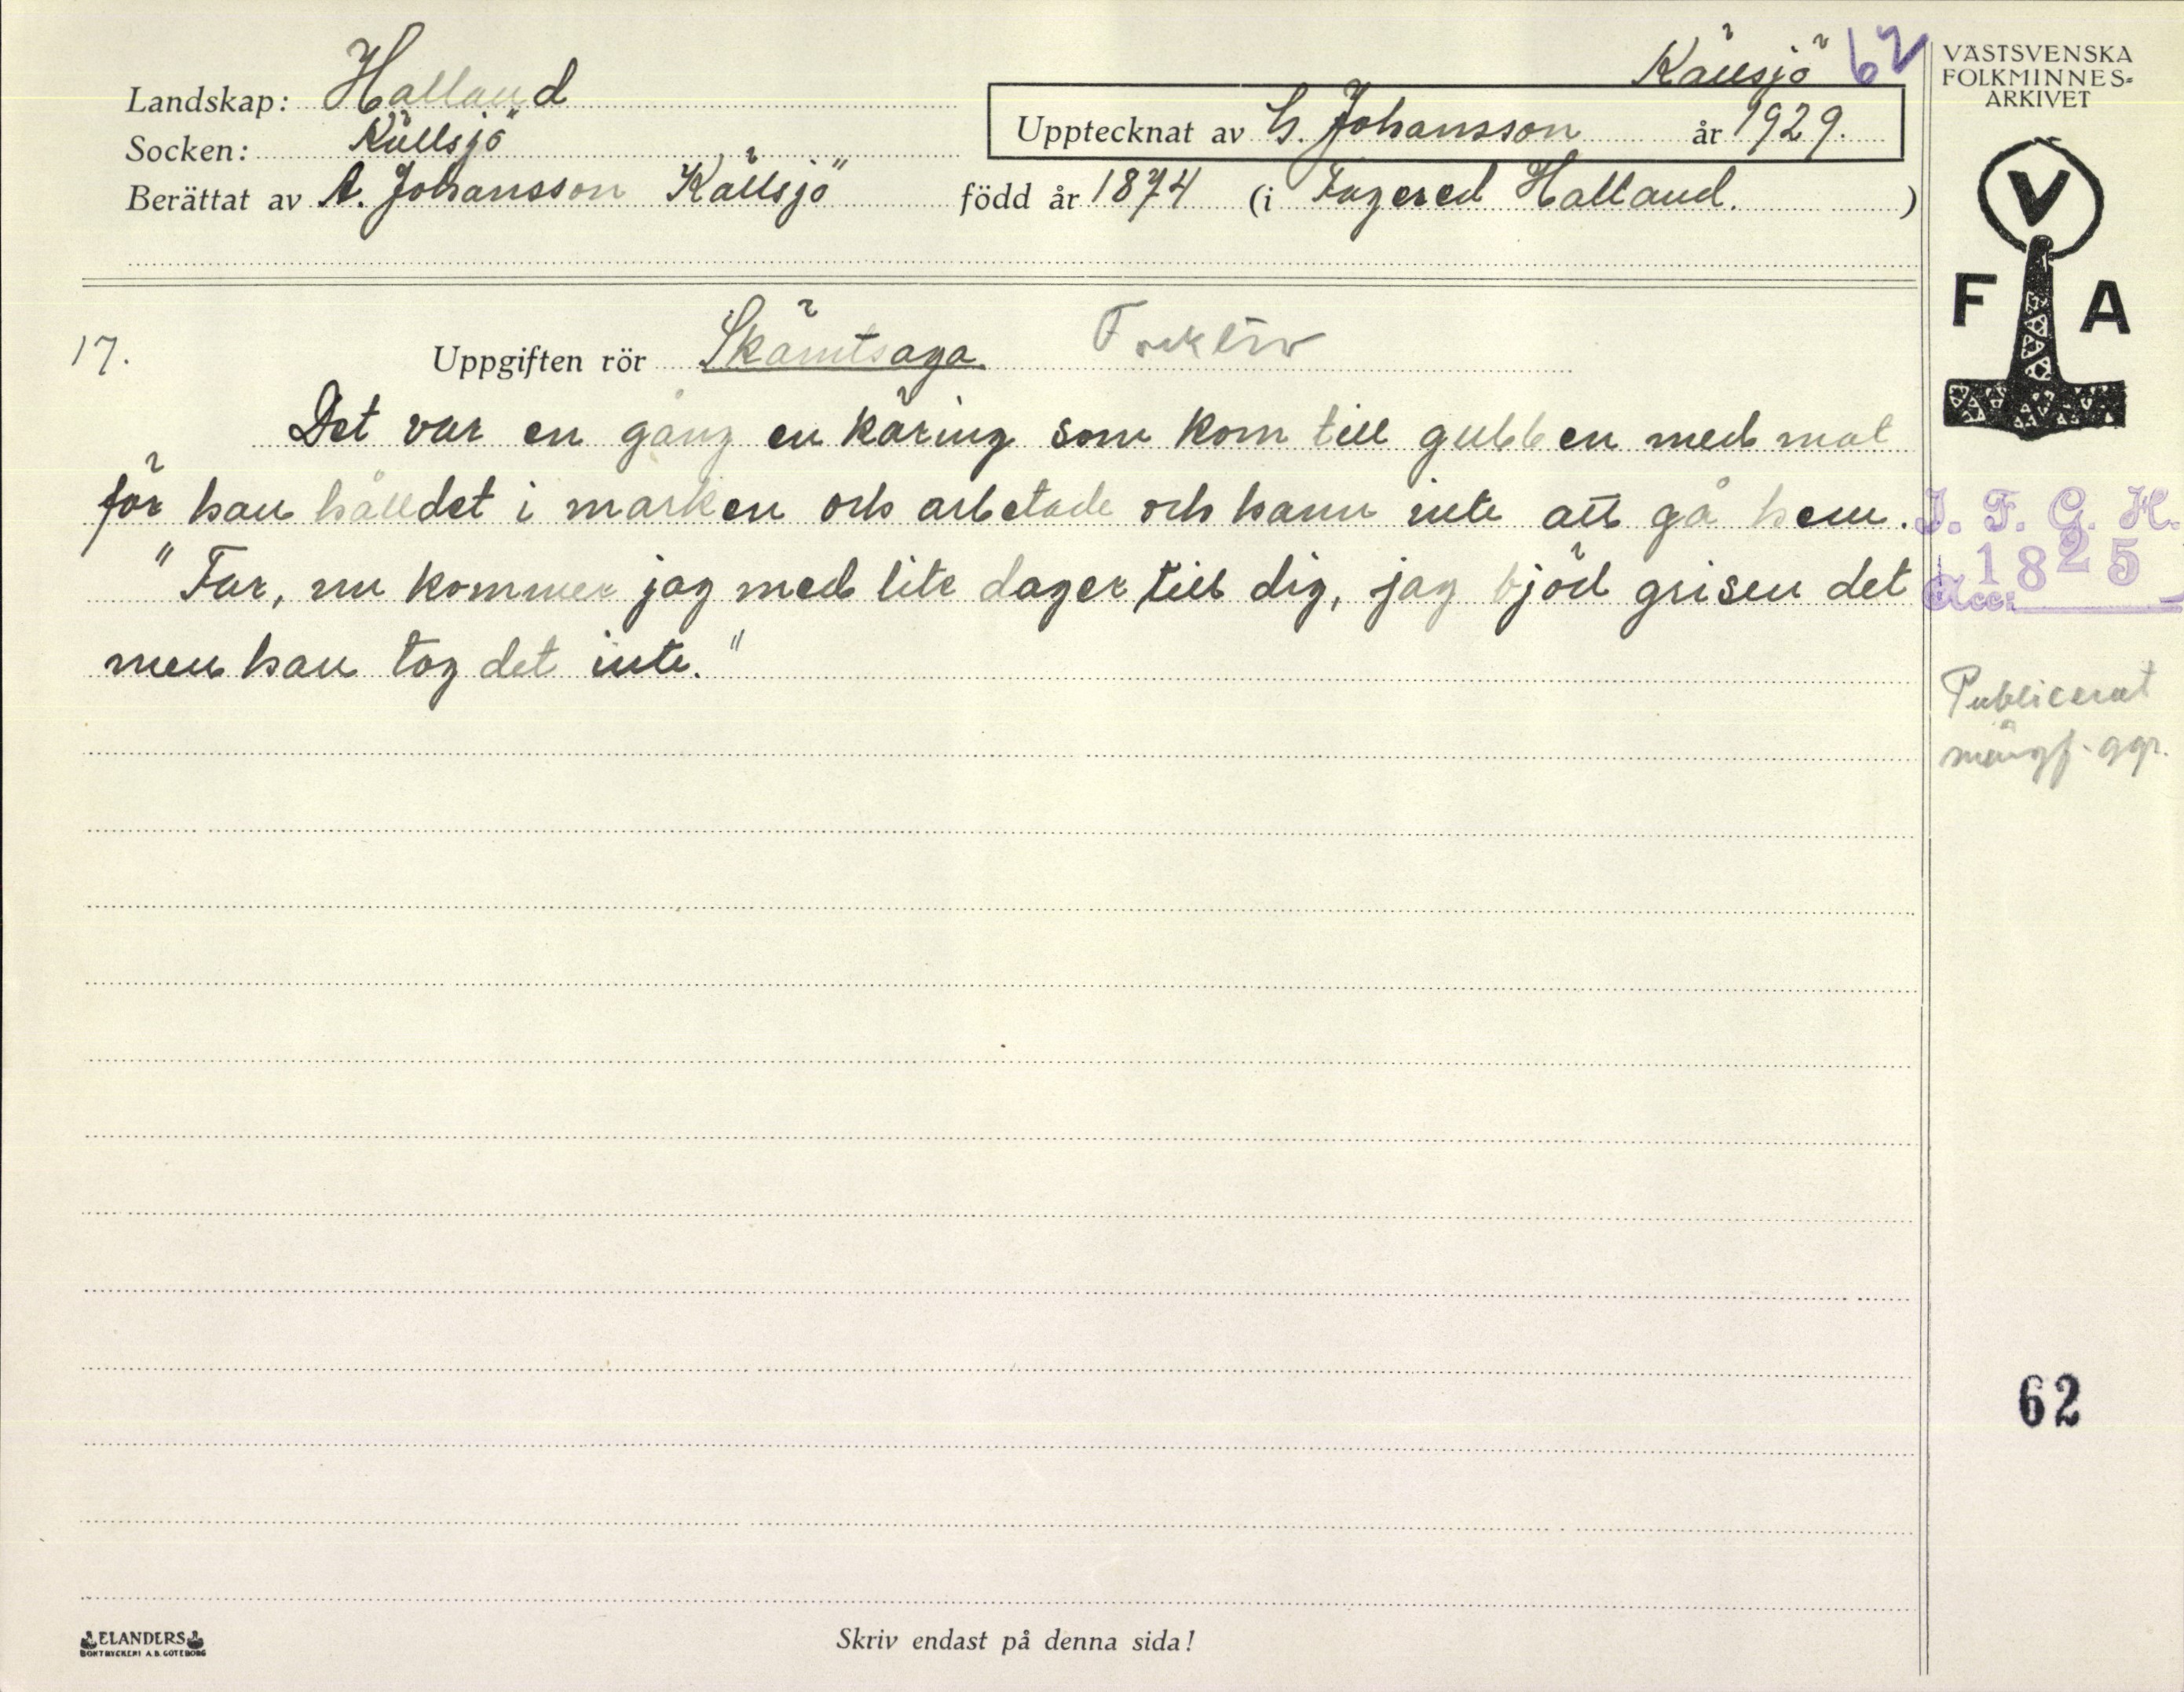 Källsjö 62
Landskap: Halland
Upptecknat av G. Johansson år 1929.
Socken: Källsjö
Berättat av A. Johansson Källsjö född år 1874 (i Fagered Halland.)
17. Uppgiften rör Skämtsaga.
Det var en gång en käring som kom till gubben med mat
för han hålldet i marken och arbetade och hann inte att gå hem.
"Far, nu kommer jag med lite dager till dig, jag bjöd grisen det
men han tog det inte."
VÄSTSVENSKA
FOLKMINNES-
ARKIVET
V
F A
I. F. G. H.
1825
Acc:
Publicerat
mångf. ggr.
62
ELANDERS
BOKTRYCKERI A.B. GÖTEBORG
Skriv endast på denna sida!